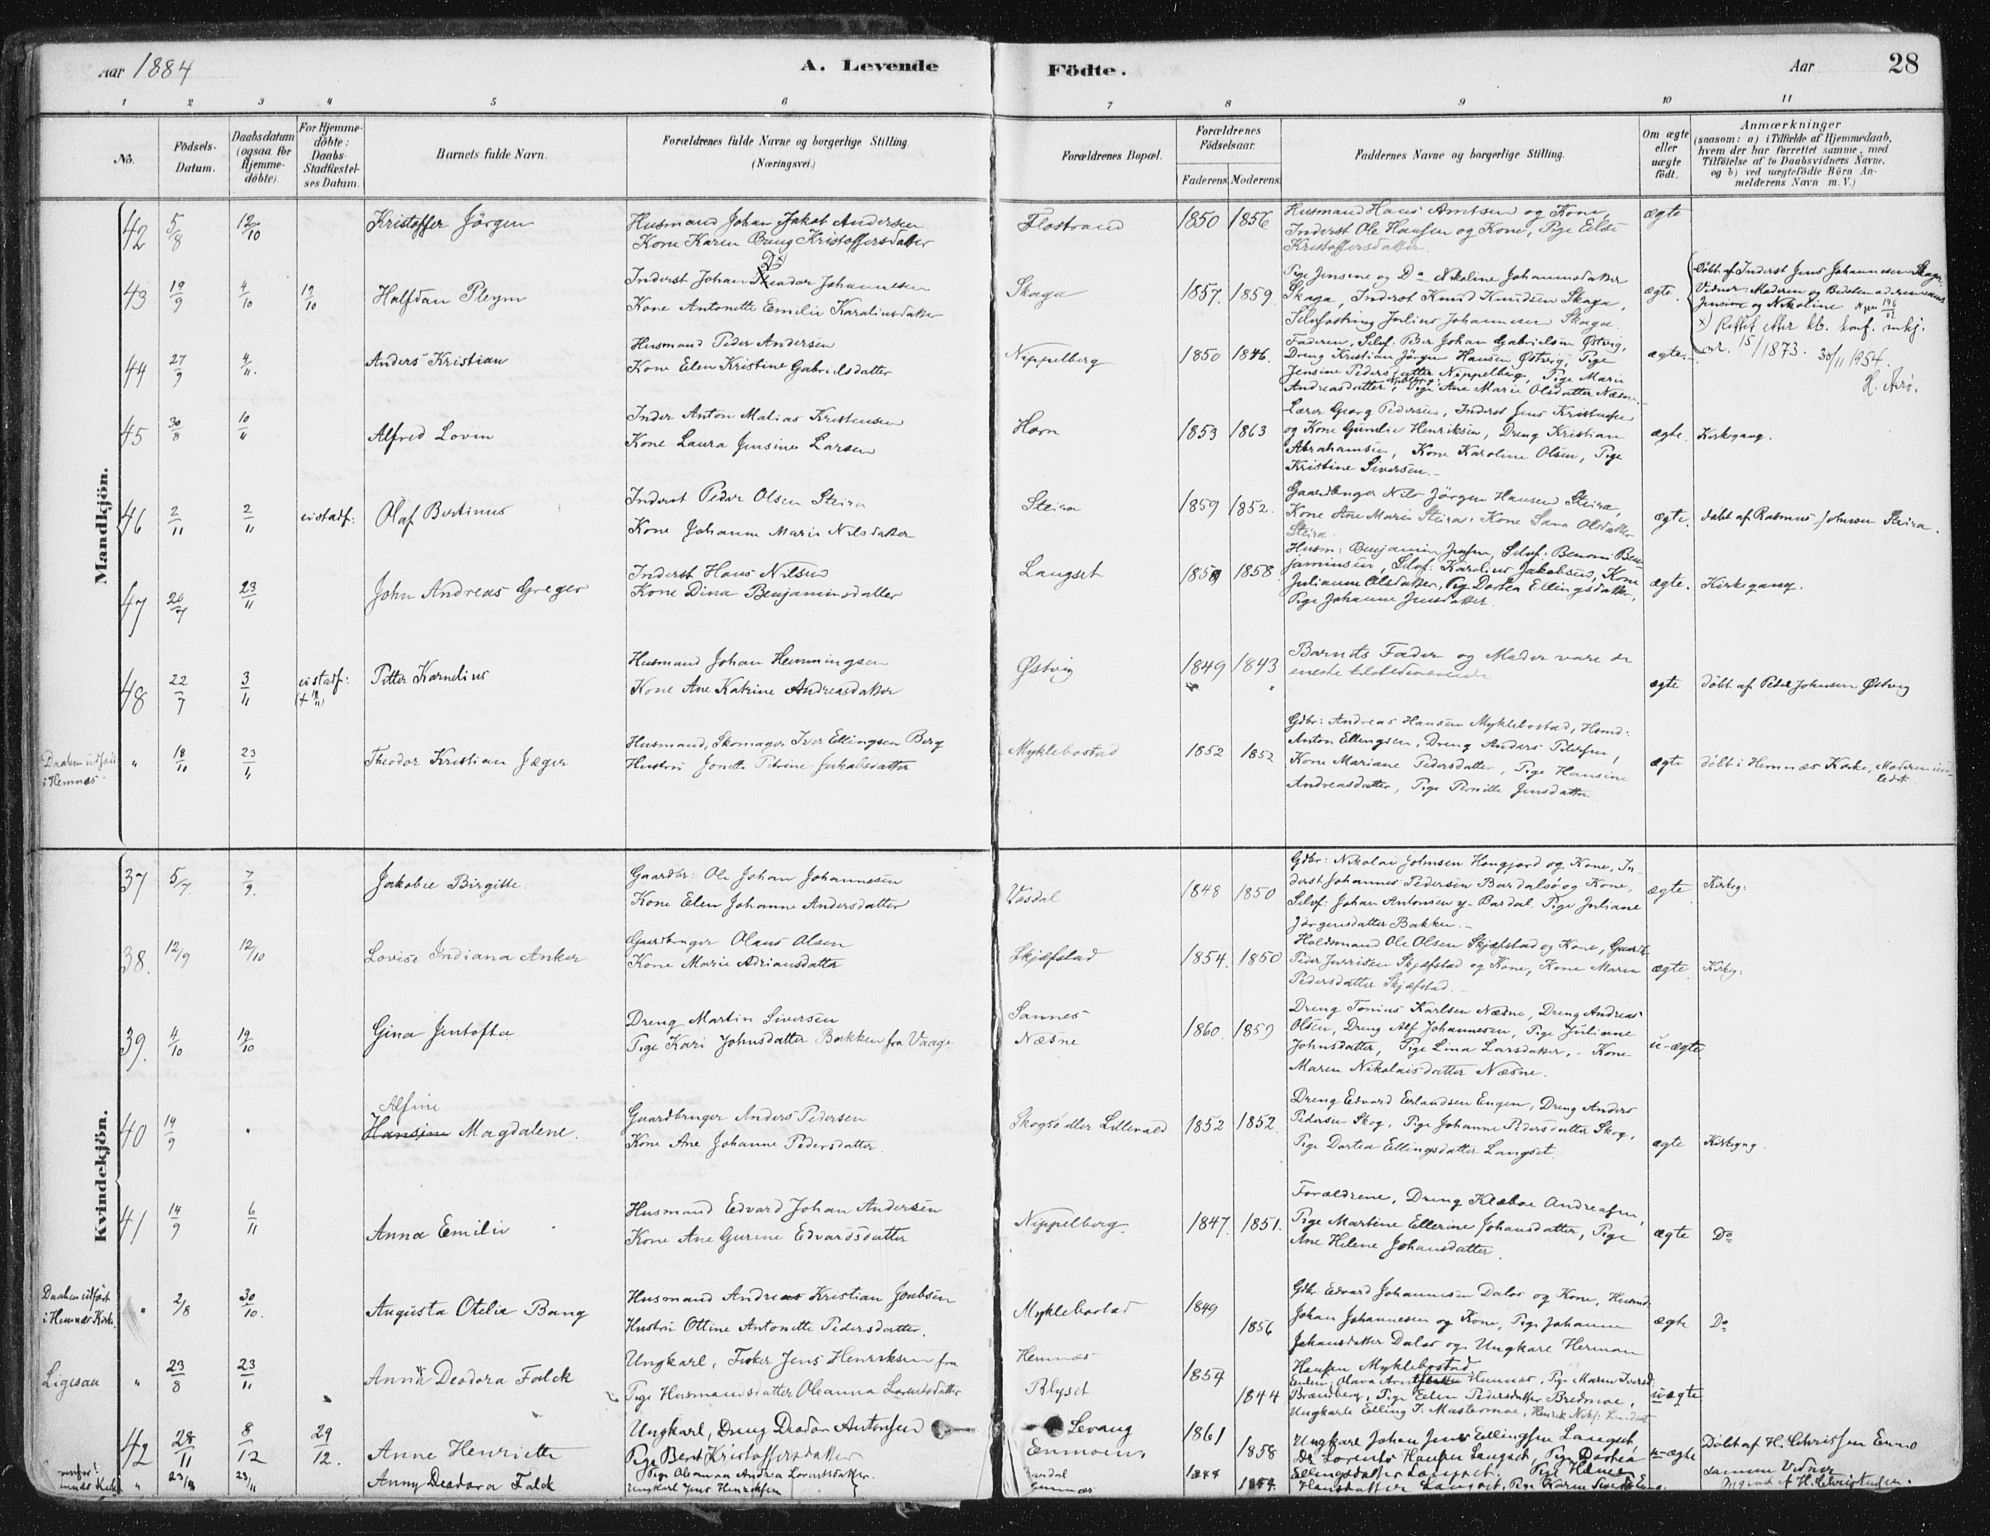 Aar 1884
A. Levende
Födte.
Aar
28
1 2 3 4 5 6 7 8 9 10 11
No.
Födsels-Datum.
Daabsdatum (ogsaa for Hjemme-döbte).
For Hjemme-döbte: Daabs-Stadfæstel-ses Datum.
Barnets fulde Navn.
Forældrenes fulde Navne og borgerlige Stilling (Næringsvei.)
Forældrenes Bopæl.
Forældrenes Födselsaar.
Faderens. Moderens.
Faddernes Navne og borgerlige Stilling.
Om ægte eller uægte födt.
Anmærkninger
(saasom: a) i Tilfælde af Hjemmedaab,
hvem der har forrettet samme, med
Tilföielse af to Daabsvidners Navne,
og b) ved uægtefödte Börn An-
melderens Navn m. V.)
Mandkjön.
42 5/8 12/10 Kristoffer Jörgen
Husmand Johan Jakob Andersen
Kone Karen Kristoffersdatter
Flostrand 1850 1856
Husmand Hans Arntsen og Kone,
Inderst Ole Hansen og Kone, Pige Else
Kristoffersdatter
ægte
43 19/9 4/10 19/10 Halfdan Pleym
Inderst Johan Theodor Johannesen
Kone Antonette Emilie Karoliusdatter
Skaga 1857. 1859.
Pige Jensine og Do Nikoline Johannesdatter
Skaga, Inderst Knud Knudsen Skaga,
Julius Johannesen Skaga.
ægte.
Döbt af Inderst Jens Johannesen Skaga.
Jensine og Nikoline
x) Rettet etter kb. konf. mkj.
nr. 15/1873. 30/11 1954.
H. Arö.
44 27/9 4/11. Anders Kristian
Husmand Peder Andersen
Kone Elen Kristine Gabrielsdatter
Nippelberg 1850 1846.
Faderen, Selvf. Peder Johan Gabrielsen Östvig,
Dreng Kristian Jörgen Hansen Östvig, Pige
Jensine Pedersdatter Nippelberg, Pige Marie
Andreasdatter, Pige Ane Marie Olsdatter Næsne.
ægte.
45 30/8 10/11 Alfred Loven
Inder Anton Matias Kristensen
Kone Laura Jensine Larsen
Horn 1853 1863
Lærer Georg Pedersen, Inderst Jens Kristensen
og Kone Henriksen, Dreng Kristian
Abrahamsen, Kone Karoline Olsen, Pige
Kristine Siversen.
ægte. Kirkegang.
46 2/11 2/11 eistadf: Olaf Bertinus
Inderst Peder Olsen Steira
Kone Johanne Marie Nilsdatter
Steira 1859 1852.
Gaardbruger Nils Jörgen Hansen Steira,
Kone Ane Marie Steira, Kone Sara Olsdatter
Steira
ægte. döbt af Rasmus Johnsen Steira.
47 26/7 23/11 John Andreas Greger
Inderst Hans Nilsen
Kone Dina Benjaminsdatter
Langset 1859 1858
Husm: Benjamin Jensen, Selvf: Benoni Ben-
jaminsen, Selvf: Karelius Jakobsen, Kone
Julianne Olsdatter, Pige Dortea Ellingsdatter,
Pige Johanne Jensdatter.
ægte. Kirkegang.
48 22/7 3/11 eistadf: Petter Kornelius
Husmand Johan Hemmingsen
Kone Ane Katrine Andreasdatter
Östvig 1849 1843
Barnets Fader og Moder vare de
eneste tilstedeværende
ægte döbt af Peder Johnsen Östvig
Daaben udfört i Hemnæs
" 18/10 23/11 Theodor Kristian Jæger
Husmand, Skomager Iver Ellingsen Berg
Hustru Jonetta Petrine Jakobsdatter
Myklebostad 1852 1852
Gdbr: Andreas Hansen Myklebostad, Hsmd:
Anton Ellingsen, Dreng Anders Petersen,
Kone Mariane Pedersdatter, Pige Hansine
Andreasdatter, Pige Pernille Jensdatter
ægte döbt i Hemnæs Kirke, Moderen ind-
ledet.
Kvindekjön.
37 5/7. 7/9. Jakobie Birgitte.
Gaardbr: Ole Johan Johannesen
Kone Elen Johanne Andersdatter
1848 1850
Gdbr: Nikolai Johnsen Hongjord og Kone, In-
derst Johannes Pedersen Bardalsö og Kone,
Selvf: Johan Antonsen y. Bardal. Pige Juliane
Jörgensdatter Bakken.
ægte. Kirkeg:
38. 12/9 12/10 Lovise Indiana Anker
Gaardbruger Olaus Olsen
Kone Marie Adriansdatter
Skjæfstad 1854. 1850
Holdsmand Ole Olsen Skjæfstad og Kone, Gaardbr
Peder Skjæfstad og Kone, Kone Maren
Pedersdatter Skjæfstad.
ægte. Kirkeg:
39. 4/10 19/10 Gina Jentofta
Dreng Martin Siversen
Pige Kari Johnsdatter Bakken fra Vaage
Sannes
Næsne
1860. 1859
Dreng Tonius Karlsen Næsne, Dreng Andreas
Olsen, Dreng Alf Johannesen, Pige Juliane
Johnsdatter, Pige Lina Larsdatter, Kone
Maren Nikolaisdatter Næsne.
u-ægte
40 14/9 Alfine
Hansine Magdalene.
Gaardbruger Anders Pedersen
Kone Ane Johanne Pedersdatter.
Skogsö eller Lillevald 1852 1852.
Dreng Edvard Erlandsen Engen, Dreng Anders
Pedersen Skog, Pige Johanne Pedersdatter Skog,
Pige Dortea Ellingsdatter Langset.
ægte Kirkegng.
41 14/9 6/11 Anna Emilie
Husmand Edvard Johan Andersen
Kone Ane Gurine Edvardsdatter
Nippelberg. 1847. 1851.
Forældrene, Dreng Klæboe Andreasen,
Pige Martine Ellerine Johansdatter, Pige
Ane Helene Johansdatter.
ægte Do
Daaben udfört i Hemnæs Kirke
" 2/8 30/10. Augusta Otelia Bang
Husmand Andreas Kristian Jakobsen
Hustru Ottine Antonette Pedersdatter.
Myklebostad 1849 1856
Gdbr Edvard Johannesen Dalos og Kone, Husmd
Johan Johannesen og Kone, Pige Johanne
Johansdatter Dalos og Ungkarl Herman
Hansen Myklebostad
ægte Do
Ligesaa
" 23/8 23/11 Anna Deodora Falck
Ungkarl, Fisker Jens Henriksen fra
Pige Husmandsdatter Oleanna Lorentsdatter
Hemnæs
1854 1844
Brændberg, Pige Elen Pedersdatter Bredmoe,
uægte
42 28/11 8/12 29/12. Anne Henriette
Ungkarl, Dreng Deodor Antonsen
Pige Berit Kristoffersdatter
Levang
1861 1858
Ungkarl Johan Jens Ellingsen Langset,
Do Lorents Hansen Langset, Pige Dortea
Ellingsdatter Langset, Pige
Hansdatter Langset, Pige
u-ægte
Döbt af H. Chrissen
samme Vidner
" 23/8 23/11 Anny Deodora Falck
Pige Oleanna Andrea Lorentsdatter.
Ungkarl Jens Henriksen
1844
1854.